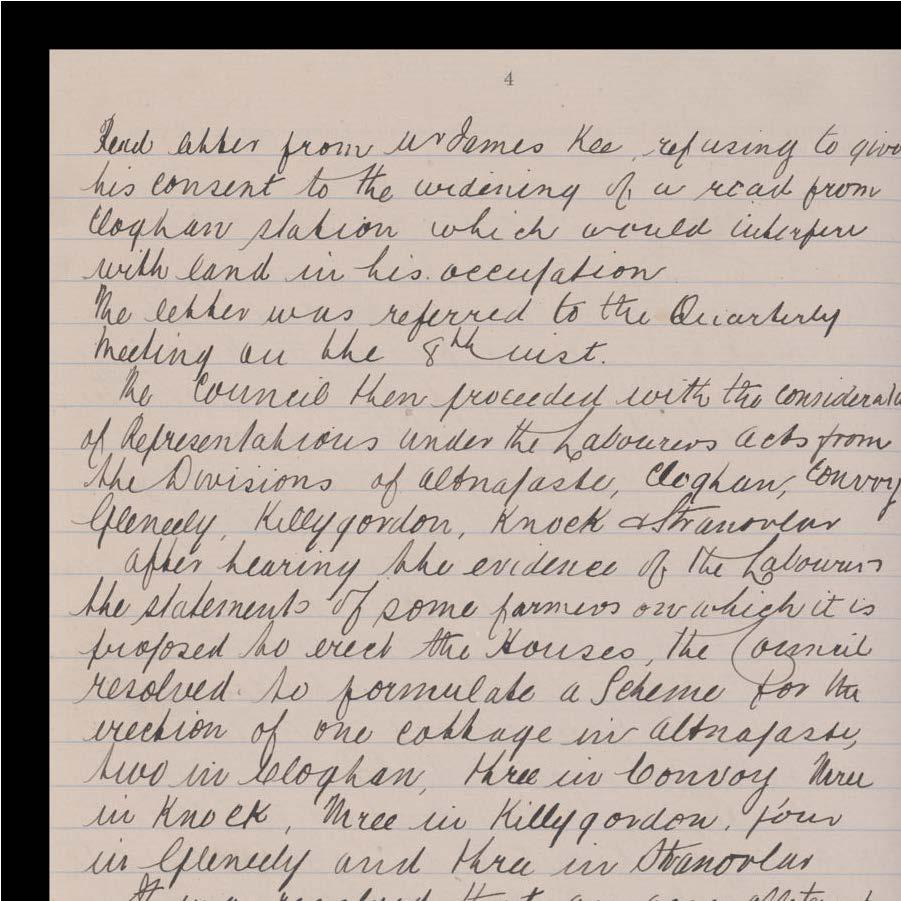 4
Read letter from Mr James Kee, refusing to give
his consent to the widening of a road from
Cloghan station which would interfere
with land in his occupation
The letter was referred to the Quarterly
Meeting on the 8th inst.
The Council then proceeded with the considerat
of Representations under the Labourers Acts from
the Divisions of Altnapaste, Cloghan, Convoy
Gleneely, Killygordon, Knock & Stranorlar
After hearing the evidence of the Labourers
the statements of some farmers on which it is
proposed to erect the Houses, the Council
resolved to formulate a Scheme for the
erection of one cottage in Altnapaste,
two in Cloghan, three in Convoy three
in Knock, three in Killygordon, four
in Gleneely and three in Stranorlar